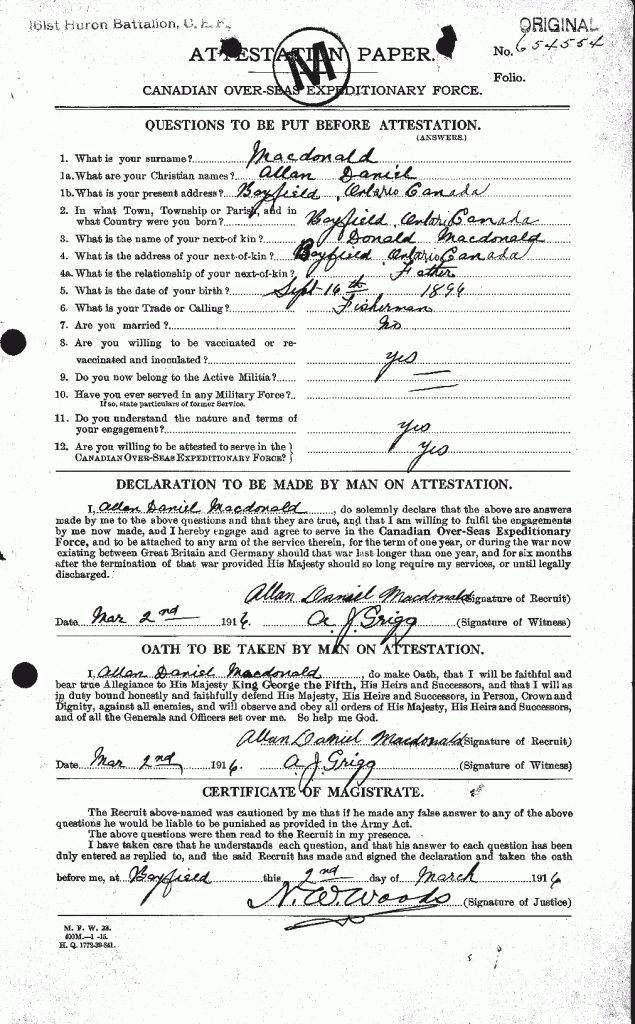 161st Huron Battalion, C. E. F.
ORIGINAL
ATTESTATION PAPER.
M
No. 654554
Folio.
CANADIAN OVER-SEAS EXPEDITIONARY FORCE.
QUESTIONS TO BE PUT BEFORE ATTESTATION.
(ANSWERS.)
1. What is your surname? Macdonald
1a. What are your Christian names? Allan Daniel
1b. What is your present address? Bayfield, Ontario Canada
2. In what Town, Township or Parish, and in
what Country were you born? Bayfield, Ontario Canada
3. What is the name of your next-of kin? Donald Macdonald
4. What is the address of your next-of-kin? Bayfield Ontario Canada
4a. What is the relationship of your next-of-kin? Father
5. What is the date of your birth? Sept-16th 1896
6. What is your Trade or Calling? Fisherman
7. Are you married? No
8. Are you willing to be vaccinated or re-
vaccinated and inoculated? Yes
9. Do you now belong to the Active Militia? —
10. Have you ever served in any Military Force? —
If so, state particulars of former Service.
11. Do you understand the nature and terms of
your engagement? Yes
12. Are you willing to be attested to serve in the
CANADIAN OVER-SEAS EXPEDITIONARY FORCE? Yes
DECLARATION TO BE MADE BY MAN ON ATTESTATION.
I, Allan Daniel Macdonald, do solemnly declare that the above are answers
made by me to the above questions and that they are true, and that I am willing to fulfil the engagements
by me now made, and I hereby engage and agree to serve in the Canadian Over-Seas Expeditionary
Force, and to be attached to any arm of the service therein, for the term of one year, or during the war now
existing between Great Britain and Germany should that war last longer than one year, and for six months
after the termination of that war provided His Majesty should so long require my services, or until legally
discharged.
Allan Daniel Macdonald (Signature of Recruit)
Date Mar 2nd 1916. A. J. Grigg (Signature of Witness)
OATH TO BE TAKEN BY MAN ON ATTESTATION.
I, Allan Daniel Macdonald, do make Oath, that I will be faithful and
bear true Allegiance to His Majesty King George the Fifth, His Heirs and Successors, and that I will as
in duty bound honestly and faithfully defend His Majesty, His Heirs and Successors, in Person, Crown and
Dignity, against all enemies, and will observe and obey all orders of His Majesty, His Heirs and Successors,
and of all the Generals and Officers set over me. So help me God.
Allan Daniel Macdonald (Signature of Recruit)
Date Mar 2nd, 1916. A. J. Grigg (Signature of Witness)
CERTIFICATE OF MAGISTRATE.
The Recruit above-named was cautioned by me that if he made any false answer to any of the above
questions he would be liable to be punished as provided in the Army Act.
The above questions were then read to the Recruit in my presence.
I have taken care that he understands each question, and that his answer to each question has been
duly entered as replied to, and the said Recruit has made and signed the declaration and taken the oath
before me, at Bayfield this 2nd day of March 1916
N. W. Woods (Signature of Justice)
M. F. W. 23.
H. Q. 1772-39-841.